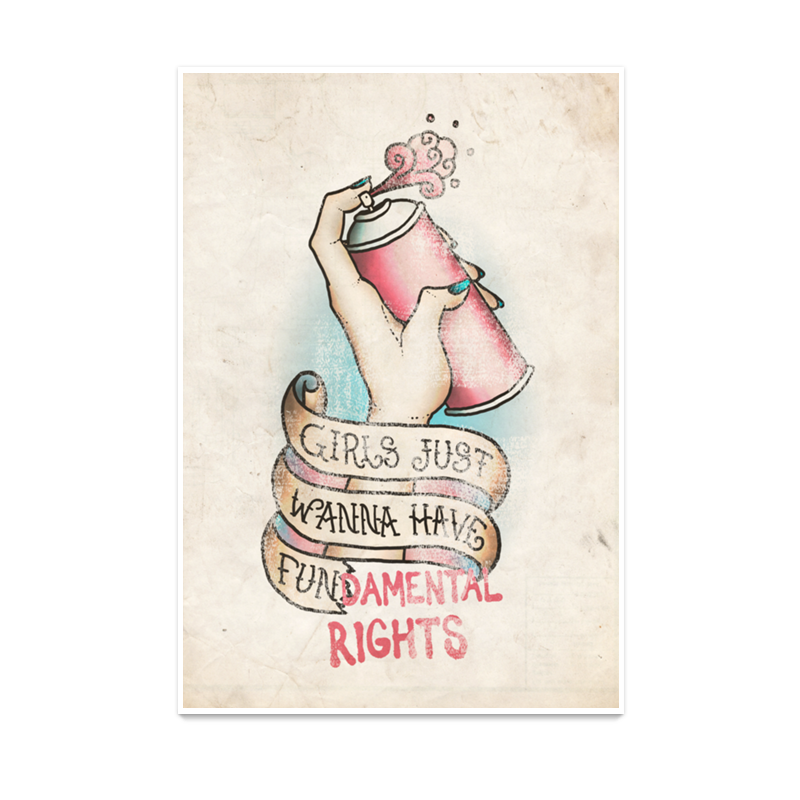 GIRLS JUST
WANNA HAVE
FUNDAMENTAL
RIGHTS